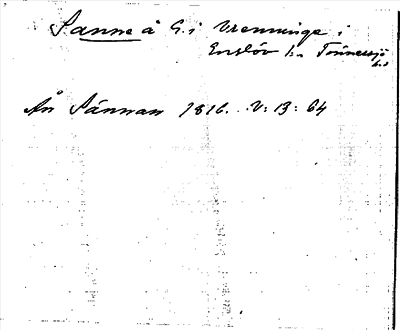 Sanne å G. i Vrenninge i
Enslöv sn Tönnersjö
hd
Ån Sännan 1816. V: 13: 64